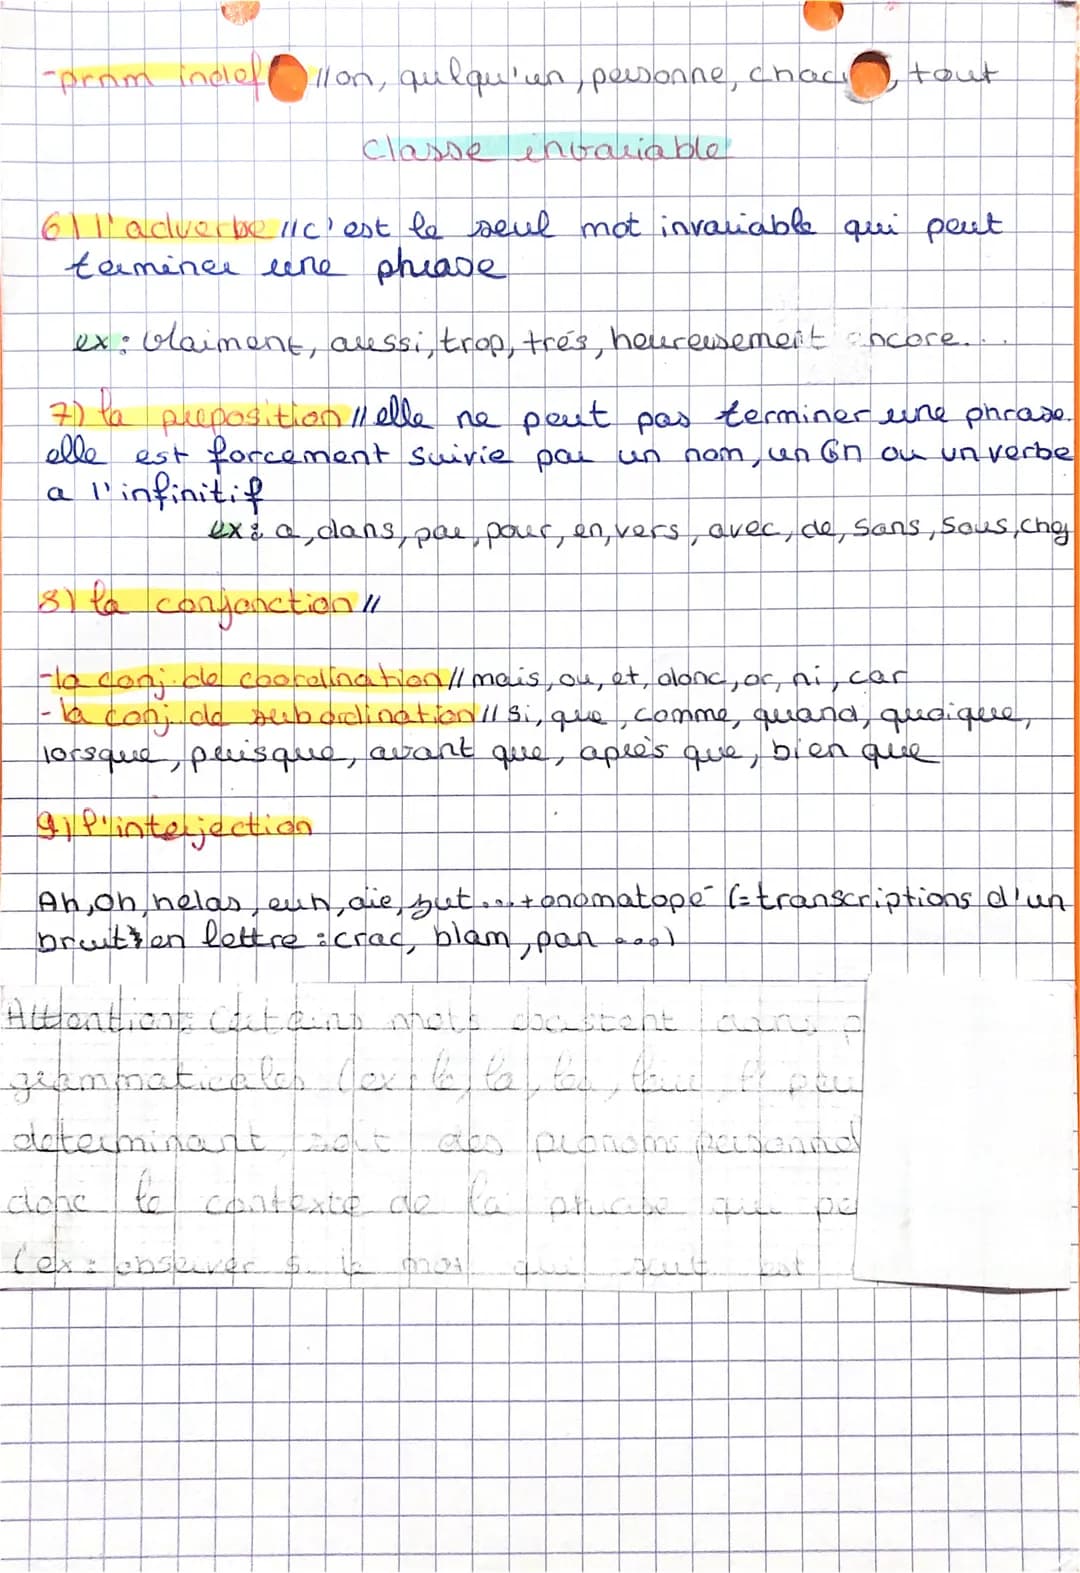 -pronm indef // on, qulqu'un, personne, chac, tout
classe invariable
6) l'adverbe // c'est le seul mot invariable qui peut
terminer une phrase
ex: vlaiment, aussi, trop, trés, heureusement encore...
7) la preposition // elle ne peut pas terminer une phrase.
elle est forcement suivie par un nom, un Gn ou un verbe
a l'infinitif
ex: a, dans, par, pour, en, vers, avec, de, sans, sous, chez
8) la conjonction //
-la conj. de coordination // mais, ou, et, donc, or, ni, car
- la conj. de subordination // si, que, comme, quand, quoique,
lorsque, puisque, avant que, après que, bien que
9) l'interjection
Ah, oh, helas, euh, aie, zut ... + onomatopé (= transcriptions d'un
bruit en lettre : crac, blam, pan ...)
Attention: certains mots
grammaticales (ex: le, la, les,
determinant soit des pronoms personnel
donc le contexte de la phrase qui
(ex: observer le mot qui suit